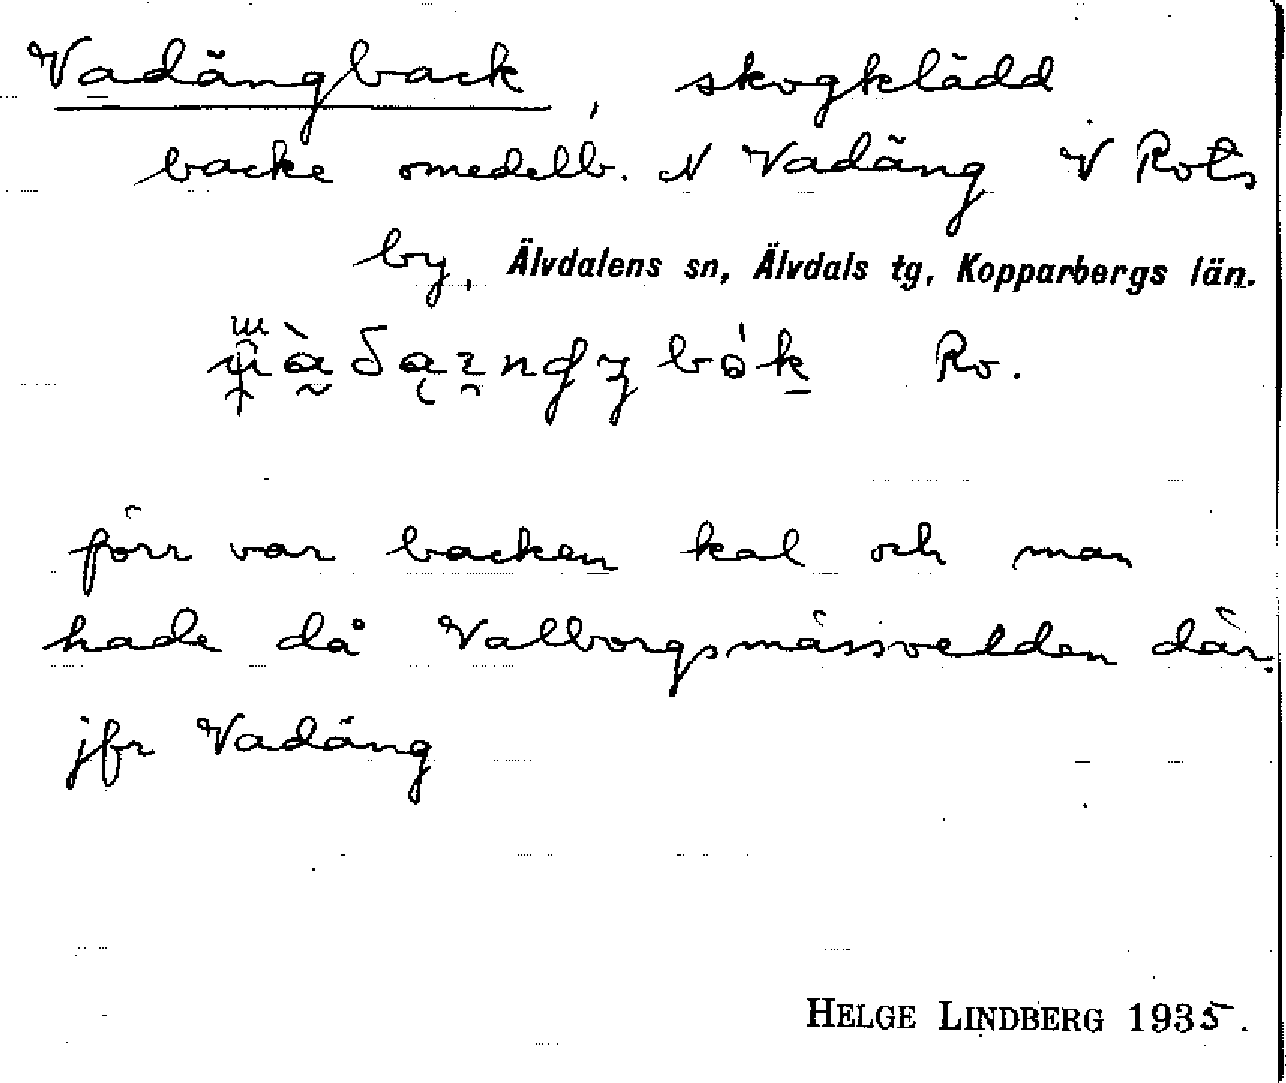 Vadängback, skogklädd
backe omedelb. N Vadäng V Rots
by, Älvdalens sn, Älvdals tg, Kopparbergs län.
Ro.
förr var backen kal och man
hade då Valborgsmässoelden där.
jfr Vadäng
HELGE LINDBERG 1935.